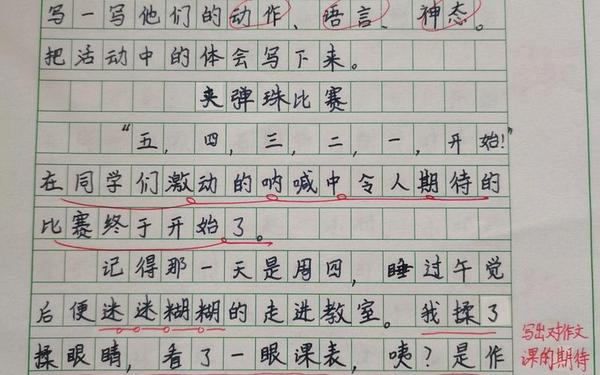 写一写他们的动作、语言、神态。
把活动中的体会写下来。
夹弹珠比赛
“五，四，三，二，一，开始！”
在同学们激动的呐喊中令人期待的
比赛终于开始了。
记得那一天是周四，睡过午觉
后便迷迷糊糊的走进教室。我揉了
揉眼睛，看了一眼课表，咦？是作
写出对作文
课的期待